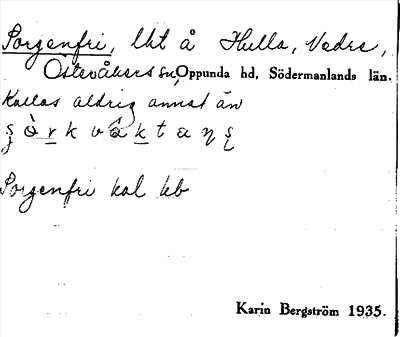 Sorgenfri, lht å Hulla, Nedre,
Österåkers sn, Oppunda hd, Södermanlands län.
Kallas aldrig annat än
Sorgenfri kal kb
Karin Bergström 1935.